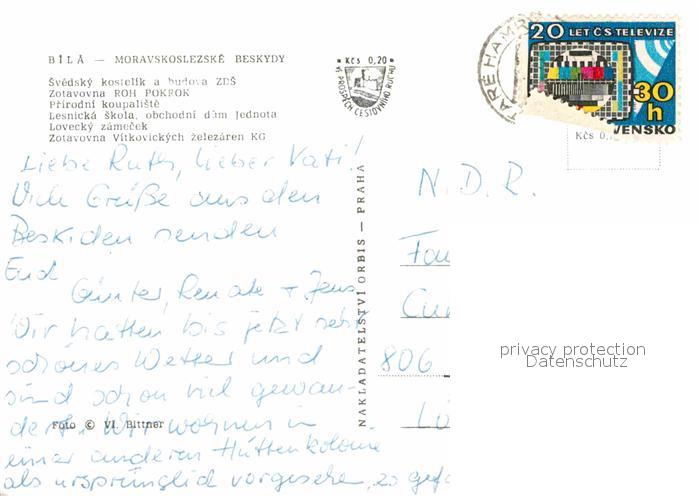 BÍLÁ — MORAVSKOSLEZSKÉ BESKYDY
Švédský kostelík a budova ZDŠ
Zotavovna ROH POKROK
Přírodní koupaliště
Lesnická škola, obchodní dům Jednota
Lovecký zámeček
Zotavovna Vítkovických železáren KG
Kčs 0,20
VE PROSPĚCH CESTOVNÍHO RUCHU
TARÉ HAMRY
20 LET ČS TELEVIZE
30 h
VENSKO
Kčs 0,
Liebe Ruth, lieber Vati!
Viele Grüße aus den
Beskiden senden
Euch
Günter, Renate + Jens
Wir hatten bis jetzt sehr
schönes Wetter und
sind schon viel gewan-
dert. Wir wohnen in
einer anderen Hüttenkolonie
als ursprünglich vorgesehen, es gef
Foto © Vl. Bittner
NAKLADATELSTVÍ ORBIS — PRAHA
N.D.R.
Fam
Cun
806
Lö
privacy protection
Datenschutz